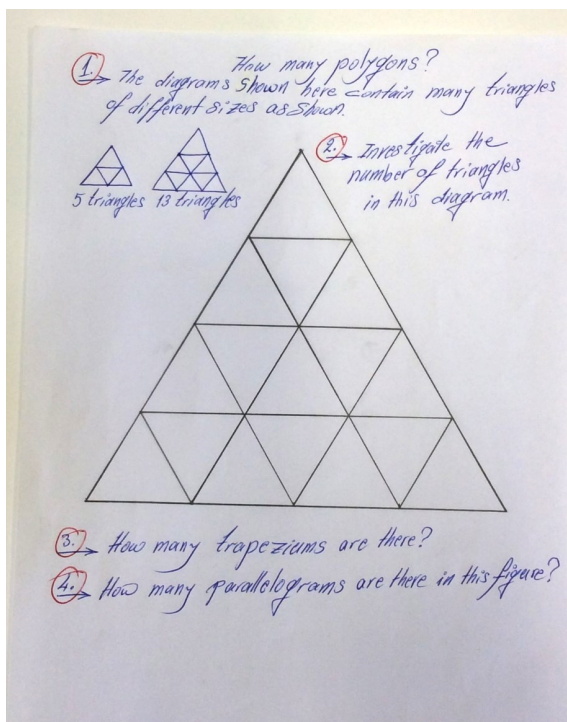 How many polygons?
1. → The diagrams shown here contain many triangles
of different sizes as shown.
5 triangles 13 triangles
2. → Investigate the
number of triangles
in this diagram.
3. → How many trapeziums are there?
4. → How many parallelograms are there in this figure?